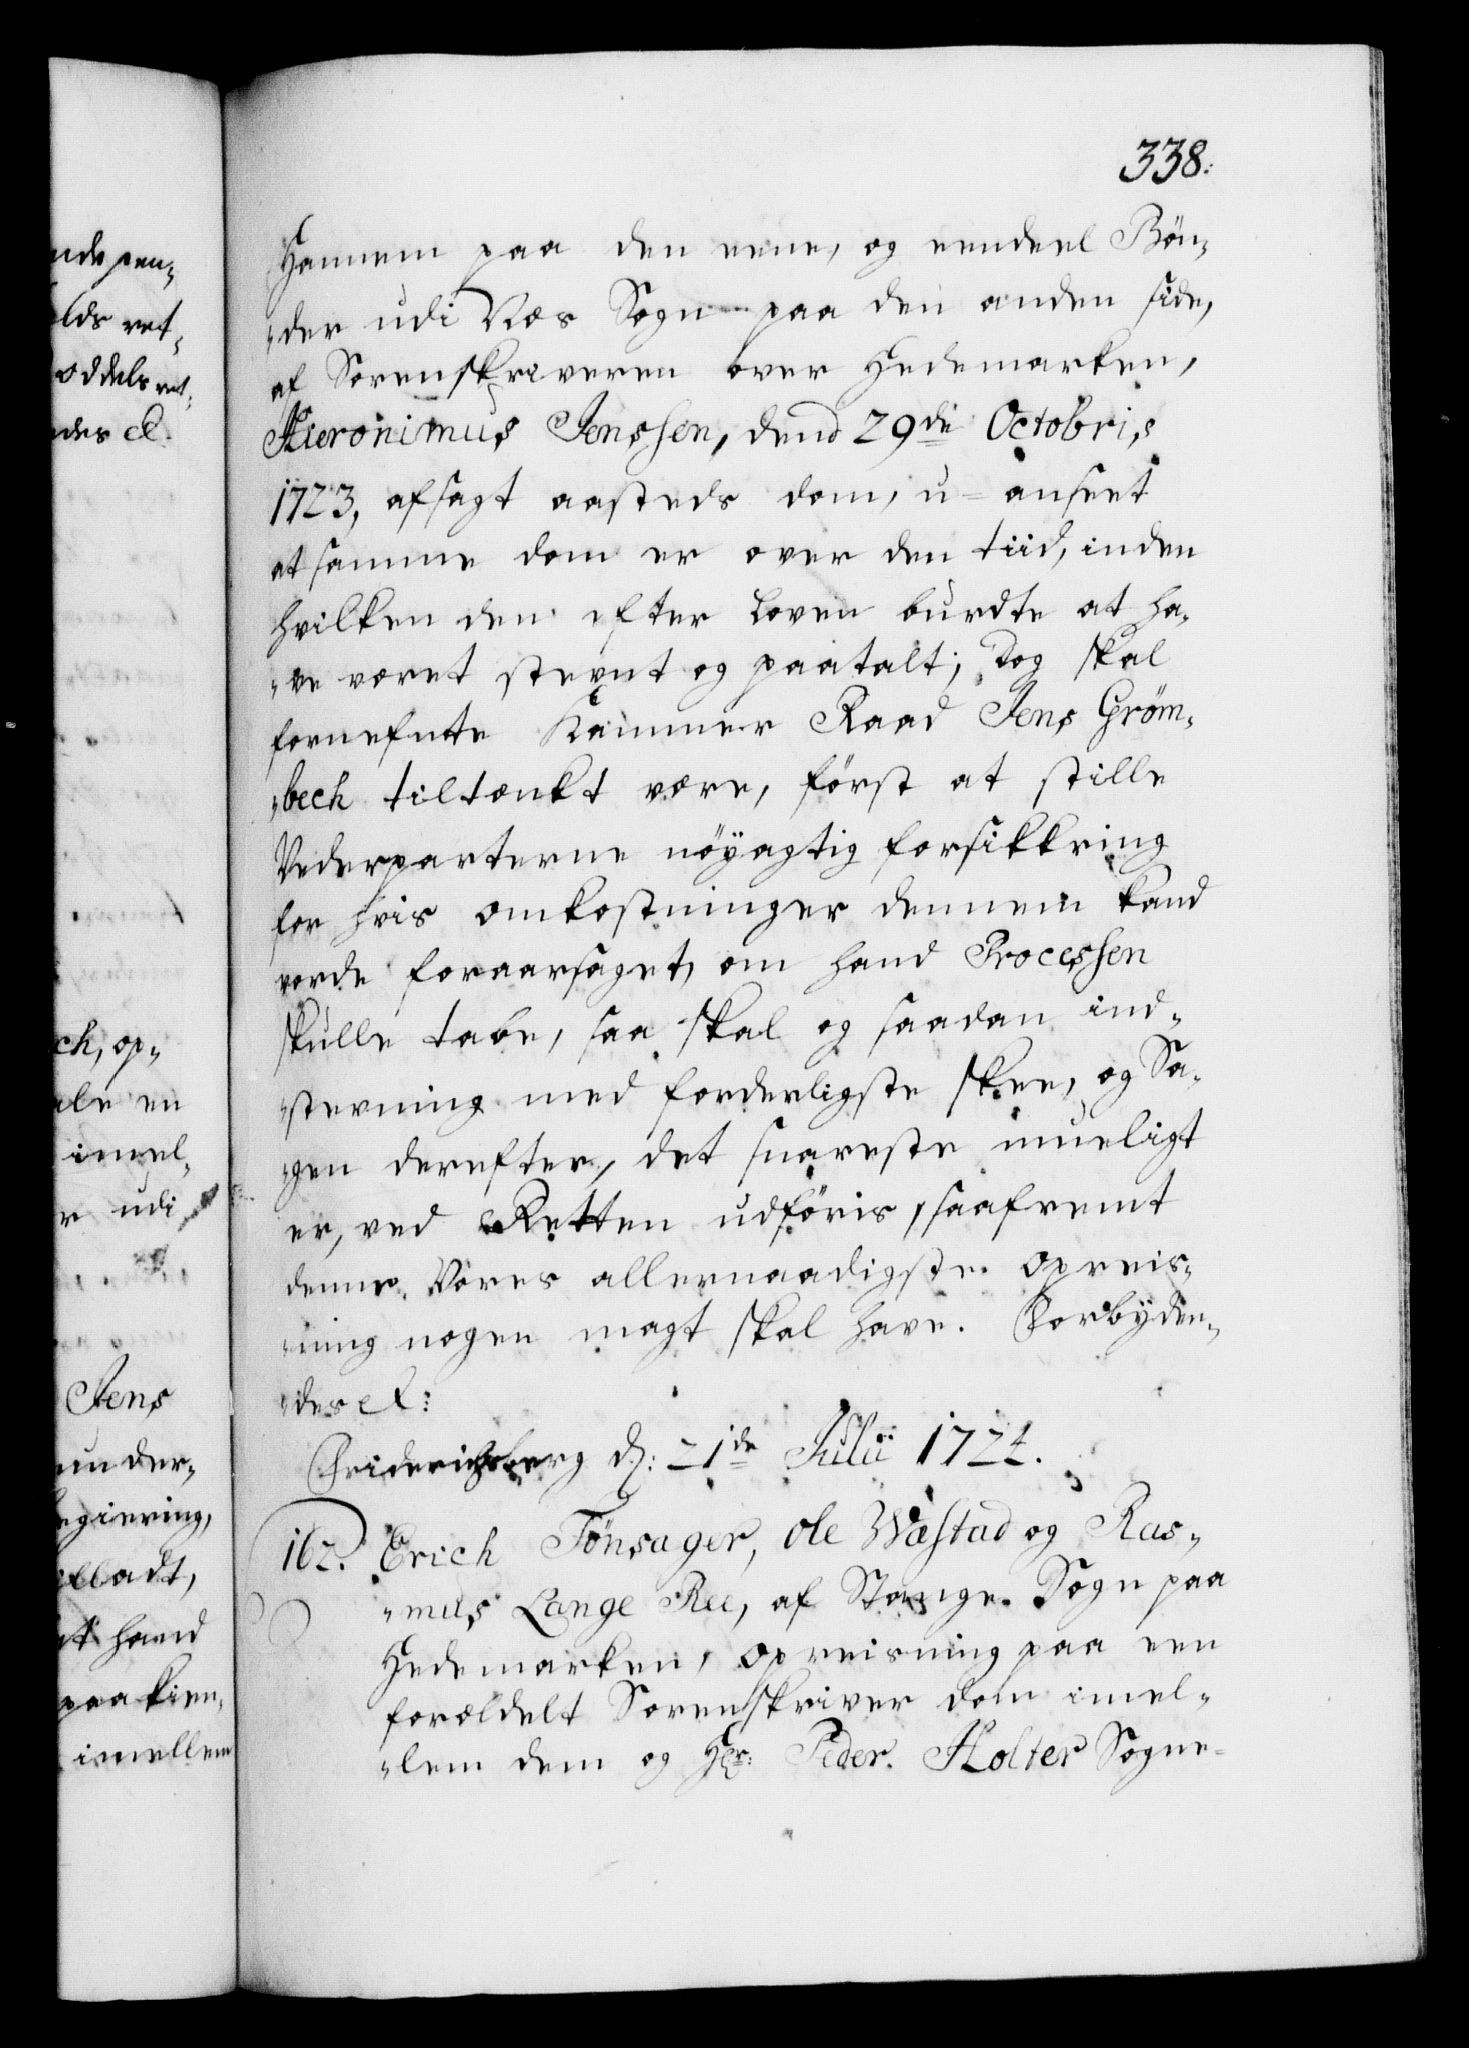 338.
Hannem paa den eene, og eendeel Bön-
"der udi Næs Sogn paa den anden side,
af Sorenskriveren over Hedemarken,
Hieronimus Jenssen, dend 29de Octobris
1723, afsagt aasteds dom, u=anseet
at samme dom er over den tiid, inden
hvilken den efter Loven burdte at ha-
"ve været stevnt og paatalt; Dog skal
fornefnte Kammer Raad Jens Gröm-
"bech tiltænkt være, först at stille
Vederparterne nöyagtig forsikkring
for hvis omkostninger dennem kand
vorde foraarsaget, om hand Processen
skulle tabe, saa skal og saadan ind-
"stevning med forderligste skee, og Sa-
"gen derefter, det snareste mueligt
er, ved Retten udföris, saafremt
denne Vores allernaadigste opreis-
"ning nogen magt skal have. Forbyden-
"des &:
Friderichsberg d: 21de Julii 1724.
162. Erich Tönsager, Ole Wæstad og Ras-
"mus Lange Ree, af Stange Sogn paa
Hedemarken, opreisning paa een
forældelt Sorenskriver dom imel-
"lem dem og Hr: Peder Holter Sogne-
nde pen-
olds ret-
oddels ret-
ndes &.
ch, op-
ale en
imel-
r udi
Jens
un der-
egiering,
illadt,
at hand
paa kien-
imellem